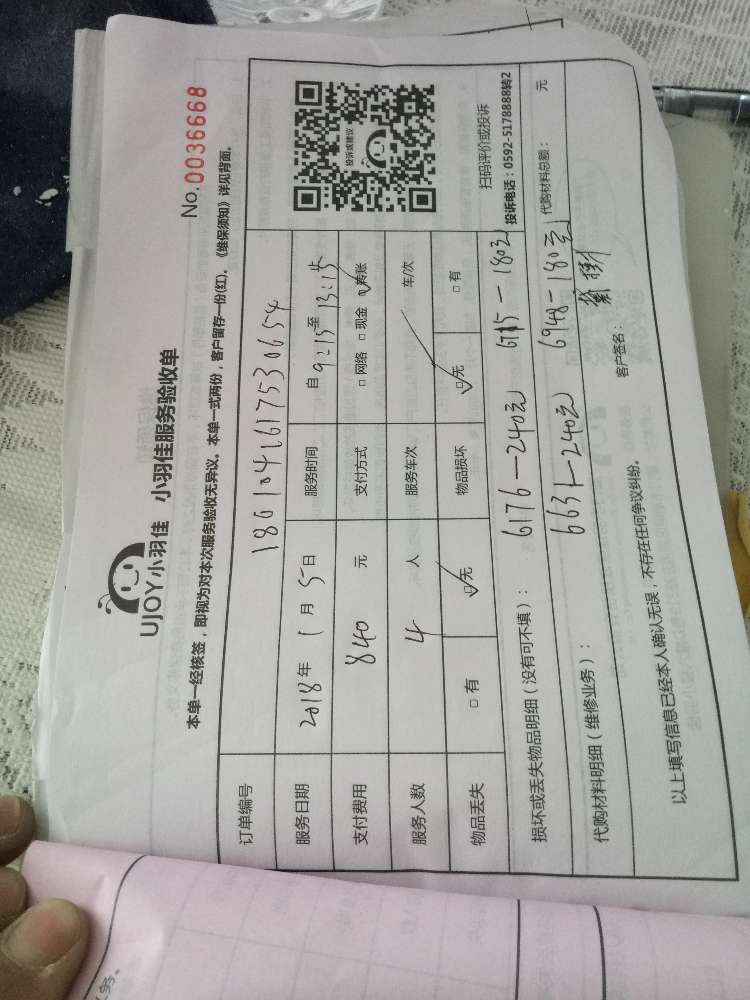 UJOY小羽佳 小羽佳服务验收单
No.0036668
本单一经核签，即视为对本次服务验收无异议。本单一式两份，客户留存一份(红)。《维保须知》详见背面。
订单编号 1801041617530654
服务日期 2018年1月5日 服务时间 自9:15至13:15
支付费用 840 元 支付方式 □网络 □现金 ☑转账
服务人数 4 人 服务车次 车/次
物品丢失 □有 ☑无 物品损坏 ☑无 □有
投诉或建议
扫码评价或投诉
投诉电话：0592-5178888转2
损坏或丢失物品明细（没有可不填）： 6176—240元 6715—180元
代购材料明细（维修业务）： 6631—240元 6948—180元 代购材料总额： 元
以上填写信息已经本人确认无误，不存在任何争议纠纷。 客户签名：
务。